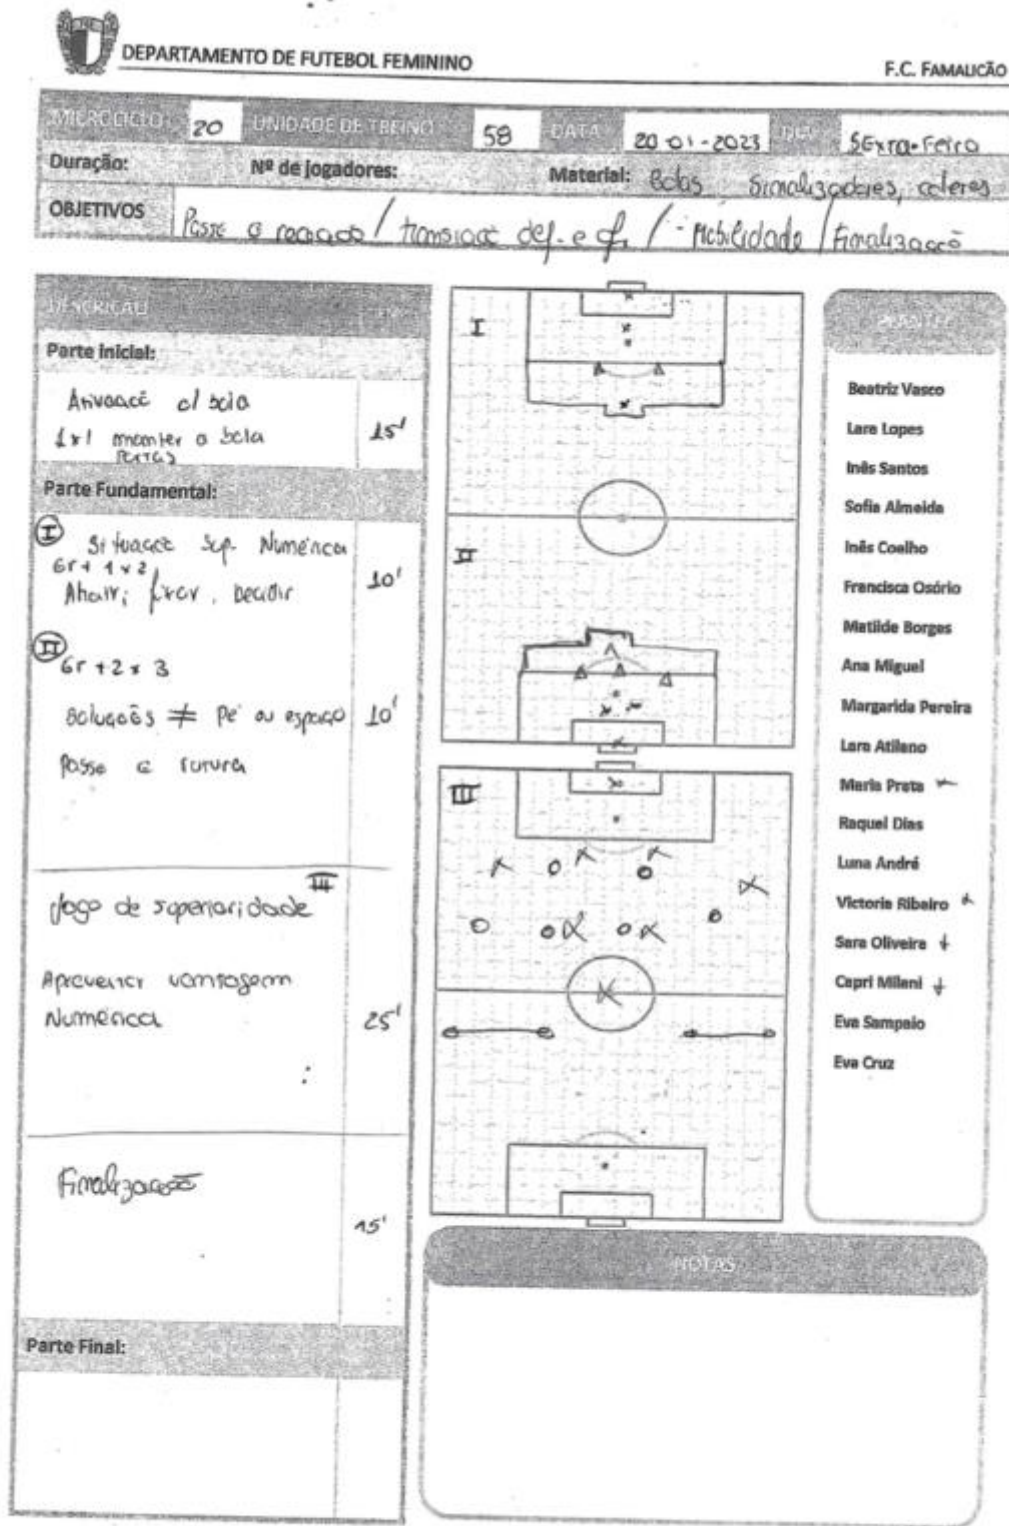 DEPARTAMENTO DE FUTEBOL FEMININO
F.C. FAMALICÃO
MICROCICLO: 20 UNIDADE DE TREINO 58 DATA 20-01-2023 DIA SExta-Feira
Duração: Nº de jogadores: Material: Bolas Sinalizadores, coletes
OBJETIVOS Passe e receção / transição def. e of. / - Mobilidade / Finalização
DESCRIÇÃO
Parte inicial:
Ativação c/ bola
1x1 manter a bola
15'
Parte Fundamental:
I Situação Sup. Numérica
Gr + 1 x 2
fixar, Decidir
10'
II
Gr + 2 x 3
Soluções ≠ Pé ou espaço 10'
Passe e rutura
III
Jogo de superioridade
Aproveitar vantagem
Numérica 25'
Finalização
15'
Parte Final:
I
II
III
NOTAS
Beatriz Vasco
Lara Lopes
Inês Santos
Sofia Almeida
Inês Coelho
Francisca Osório
Matilde Borges
Ana Miguel
Margarida Pereira
Lara Atilano
Maria Prata
Raquel Dias
Luna André
Victoria Ribeiro
Sara Oliveira
Capri Milani
Eva Sampaio
Eva Cruz